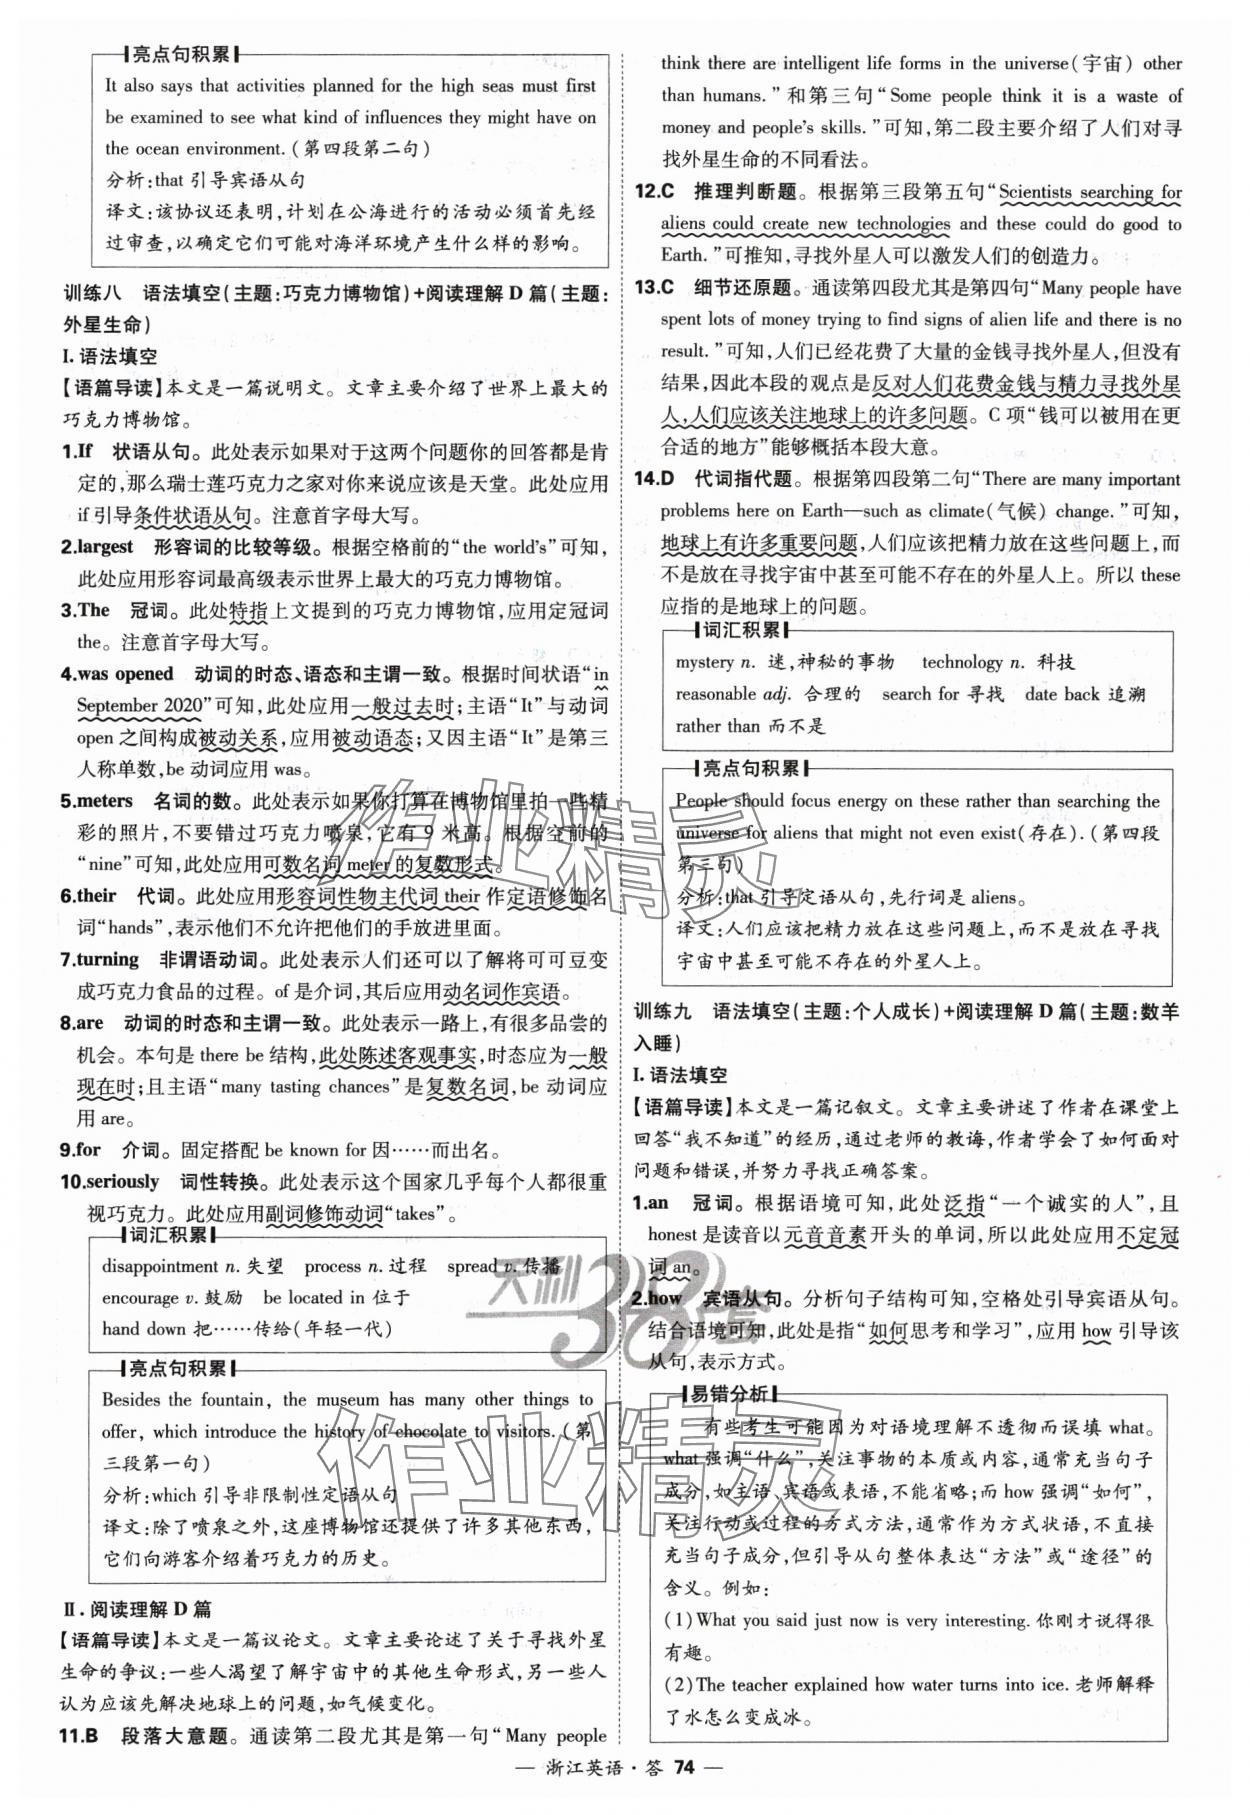 亮点句积累
It also says that activities planned for the high seas must first
be examined to see what kind of influences they might have on
the ocean environment.(第四段第二句)
分析:that 引导宾语从句
译文:该协议还表明,计划在公海进行的活动必须首先经
过审查,以确定它们可能对海洋环境产生什么样的影响。
训练八 语法填空(主题:巧克力博物馆)+阅读理解 D 篇(主题:
外星生命)
Ⅰ. 语法填空
【语篇导读】本文是一篇说明文。文章主要介绍了世界上最大的
巧克力博物馆。
1.If 状语从句。此处表示如果对于这两个问题你的回答都是肯
定的,那么瑞士莲巧克力之家对你来说应该是天堂。此处应用
if 引导条件状语从句。注意首字母大写。
2.largest 形容词的比较等级。根据空格前的“the world's”可知,
此处应用形容词最高级表示世界上最大的巧克力博物馆。
3.The 冠词。此处特指上文提到的巧克力博物馆,应用定冠词
the。注意首字母大写。
4.was opened 动词的时态、语态和主谓一致。根据时间状语“in
September 2020”可知,此处应用一般过去时;主语“It”与动词
open 之间构成被动关系,应用被动语态;又因主语“It”是第三
人称单数,be 动词应用 was。
5.meters 名词的数。此处表示如果你打算在博物馆里拍一些精
彩的照片,不要错过巧克力喷泉,它有 9 米高。根据空前的
“nine”可知,此处应用可数名词 meter 的复数形式。
6.their 代词。此处应用形容词性物主代词 their 作定语修饰名
词“hands”,表示他们不允许把他们的手放进里面。
7.turning 非谓语动词。此处表示人们还可以了解将可可豆变
成巧克力食品的过程。of 是介词,其后应用动名词作宾语。
8.are 动词的时态和主谓一致。此处表示一路上,有很多品尝的
机会。本句是 there be 结构,此处陈述客观事实,时态应为一般
现在时;且主语“many tasting chances”是复数名词,be 动词应
用 are。
9.for 介词。固定搭配 be known for 因……而出名。
10.seriously 词性转换。此处表示这个国家几乎每个人都很重
视巧克力。此处应用副词修饰动词“takes”。
词汇积累
disappointment n. 失望 process n. 过程 spread v. 传播
encourage v. 鼓励 be located in 位于
hand down 把……传给(年轻一代)
亮点句积累
Besides the fountain, the museum has many other things to
offer, which introduce the history of chocolate to visitors.(第
三段第一句)
分析:which 引导非限制性定语从句
译文:除了喷泉之外,这座博物馆还提供了许多其他东西,
它们向游客介绍着巧克力的历史。
Ⅱ. 阅读理解 D 篇
【语篇导读】本文是一篇议论文。文章主要论述了关于寻找外星
生命的争议:一些人渴望了解宇宙中的其他生命形式,另一些人
认为应该先解决地球上的问题,如气候变化。
11.B 段落大意题。通读第二段尤其是第一句“Many people
think there are intelligent life forms in the universe(宇宙) other
than humans.”和第三句“Some people think it is a waste of
money and people's skills.”可知,第二段主要介绍了人们对寻
找外星生命的不同看法。
12.C 推理判断题。根据第三段第五句“Scientists searching for
aliens could create new technologies and these could do good to
Earth.”可推知,寻找外星人可以激发人们的创造力。
13.C 细节还原题。通读第四段尤其是第四句“Many people have
spent lots of money trying to find signs of alien life and there is no
result.”可知,人们已经花费了大量的金钱寻找外星人,但没有
结果,因此本段的观点是反对人们花费金钱与精力寻找外星
人,人们应该关注地球上的许多问题。C 项“钱可以被用在更
合适的地方”能够概括本段大意。
14.D 代词指代题。根据第四段第二句“There are many important
problems here on Earth—such as climate(气候) change.”可知,
地球上有许多重要问题,人们应该把精力放在这些问题上,而
不是放在寻找宇宙中甚至可能不存在的外星人上。所以 these
应指的是地球上的问题。
词汇积累
mystery n. 迷,神秘的事物 technology n. 科技
reasonable adj. 合理的 search for 寻找 date back 追溯
rather than 而不是
亮点句积累
People should focus energy on these rather than searching the
universe for aliens that might not even exist(存在).(第四段
第三句)
分析:that 引导定语从句,先行词是 aliens。
译文:人们应该把精力放在这些问题上,而不是放在寻找
宇宙中甚至可能不存在的外星人上。
训练九 语法填空(主题:个人成长)+阅读理解 D 篇(主题:数羊
入睡)
Ⅰ. 语法填空
【语篇导读】本文是一篇记叙文。文章主要讲述了作者在课堂上
回答“我不知道”的经历,通过老师的教诲,作者学会了如何面对
问题和错误,并努力寻找正确答案。
1.an 冠词。根据语境可知,此处泛指“一个诚实的人”,且
honest 是读音以元音音素开头的单词,所以此处应用不定冠
词 an。
2.how 宾语从句。分析句子结构可知,空格处引导宾语从句。
结合语境可知,此处是指“如何思考和学习”,应用 how 引导该
从句,表示方式。
易错分析
有些考生可能因为对语境理解不透彻而误填 what。
what 强调“什么”,关注事物的本质或内容,通常充当句子
成分,如主语、宾语或表语,不能省略;而 how 强调“如何”,
关注行动或过程的方式方法,通常作为方式状语,不直接
充当句子成分,但引导从句整体表达“方法”或“途径”的
含义。例如:
(1)What you said just now is very interesting. 你刚才说得很
有趣。
(2)The teacher explained how water turns into ice. 老师解释
了水怎么变成冰。
— 浙江英语·答 74 —
作业精灵
天利38套
作业精灵